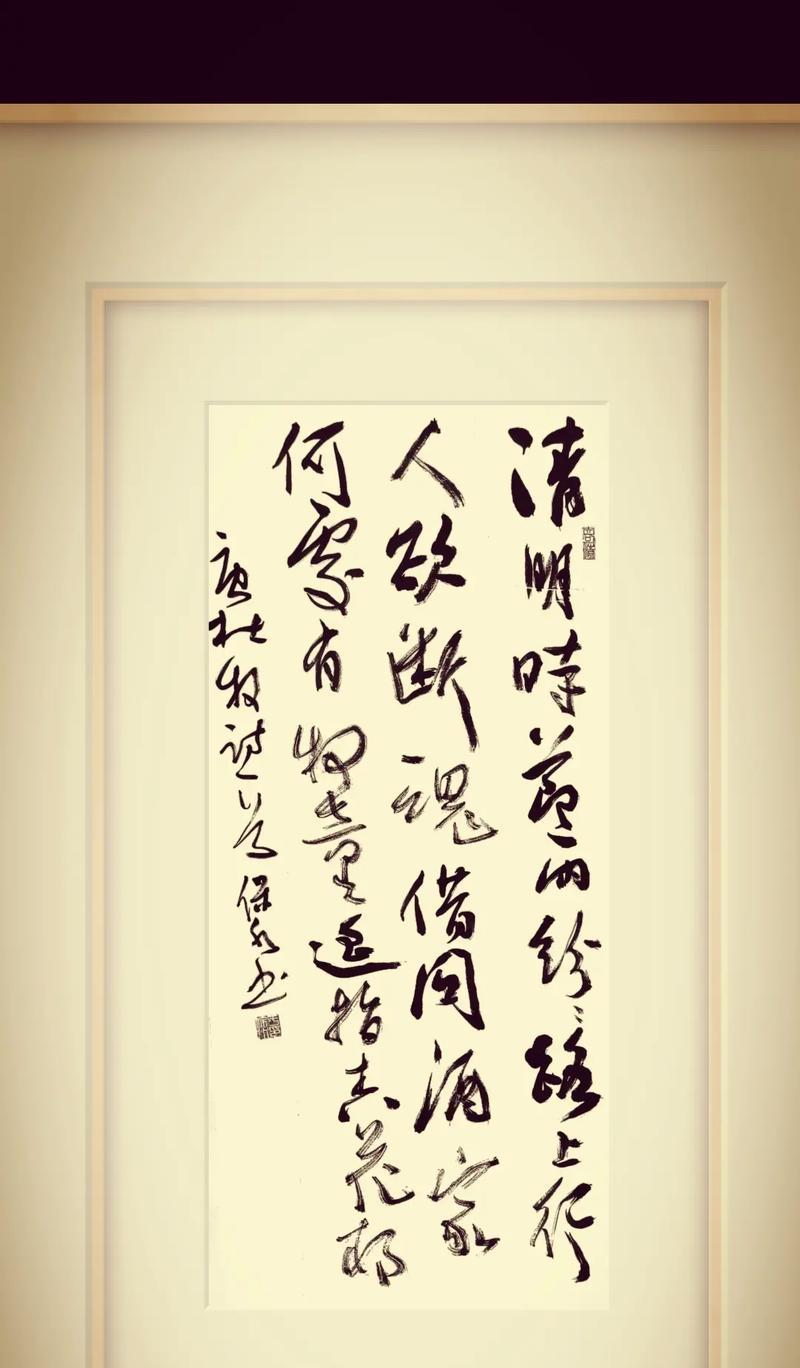 清明時節雨紛々路上行
人欲斷魂借問酒家
何處有牧童遙指杏花村
唐杜牧詩一首保书